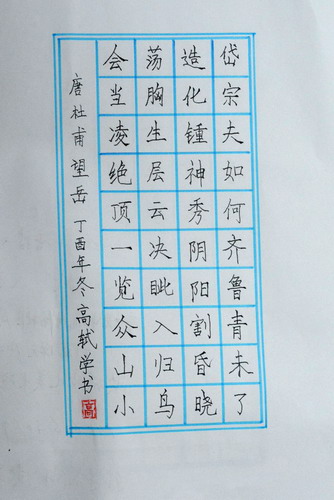 岱宗夫如何齐鲁青未了
造化锺神秀阴阳割昏晓
荡胸生层云决眦入归鸟
会当凌绝顶一览众山小
唐杜甫望岳丁酉年冬高轼学书
高